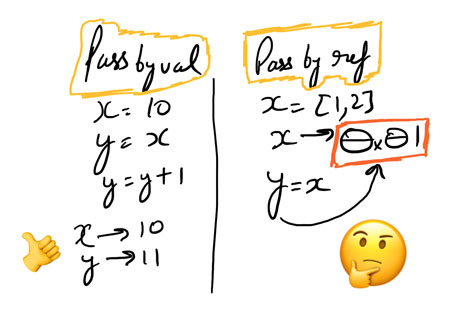 Pass by val
x = 10
y = x
y = y + 1
x → 10
y → 11
Pass by ref
x = [1,2]
x → 0x01
y = x